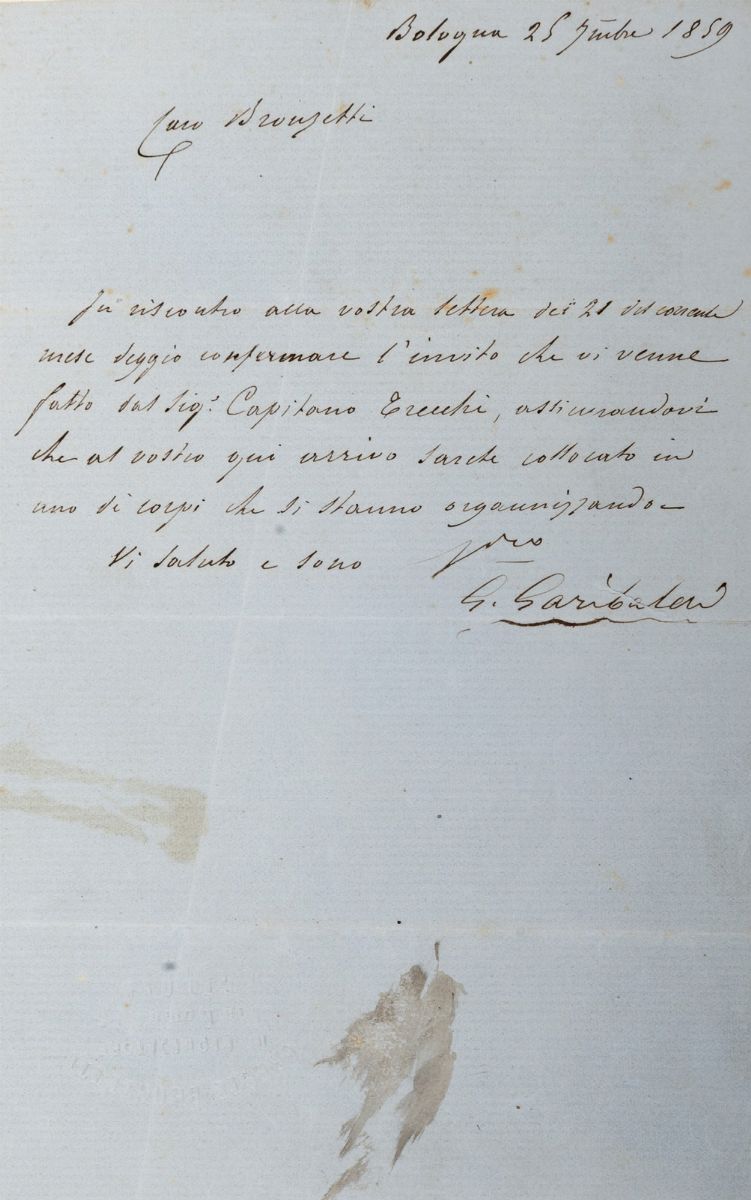 Bologna 25 7mbre 1859
Caro Bronzetti
In riscontro alla vostra lettera dei 21 del corrente
mese deggio confermare l'invito che vi venne
fatto dal Sigr. Capitano Trecchi, assicurandovi
che al vostro qui arrivo sarete collocato in
uno di corpi che si stanno organnizzando
Vi saluto e sono
G. Garibaldi